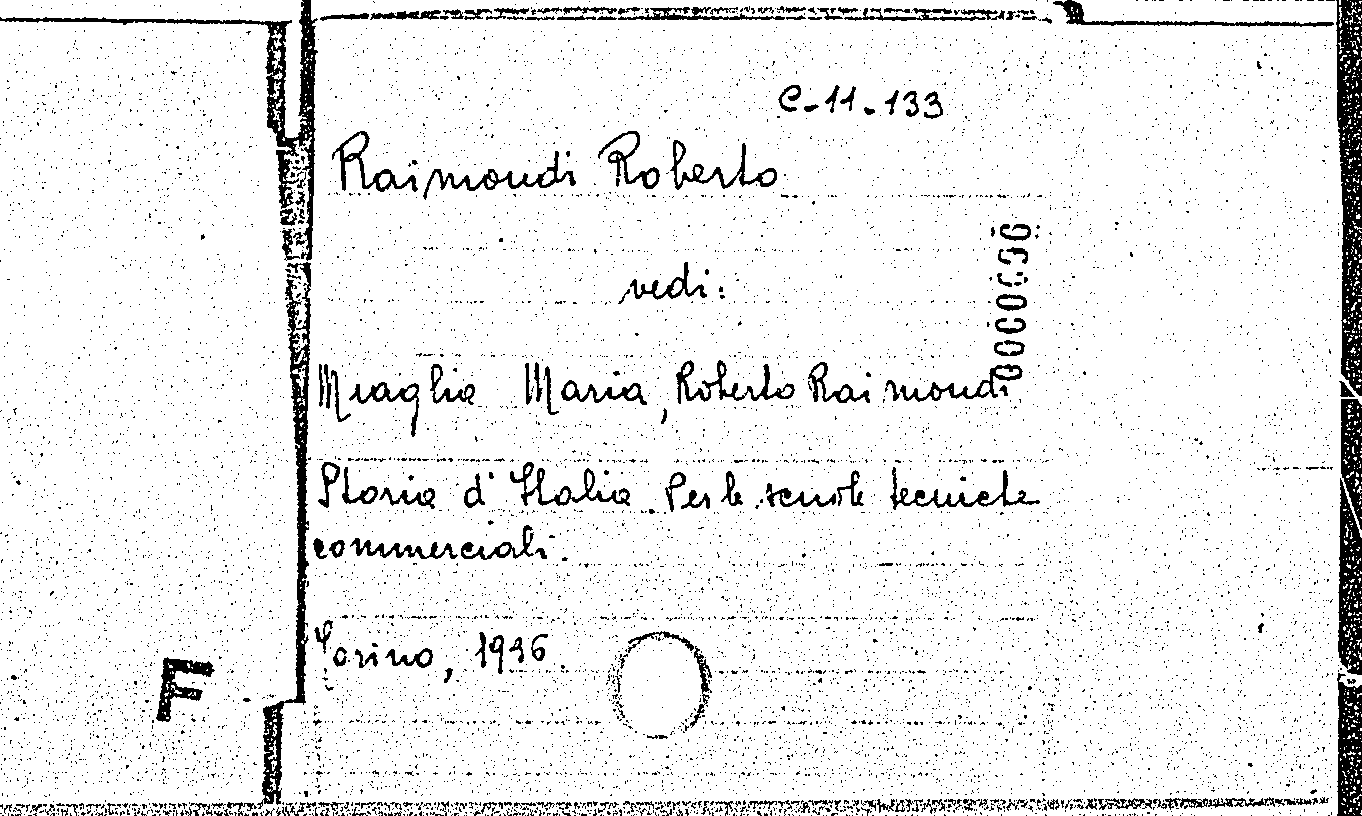 C-11-133
Raimondi Roberto
vedi:
Miaglia Maria, Roberto Raimondi
Storia d'Italia. Per le scuole tecniche
commerciali.
Torino, 1936
F